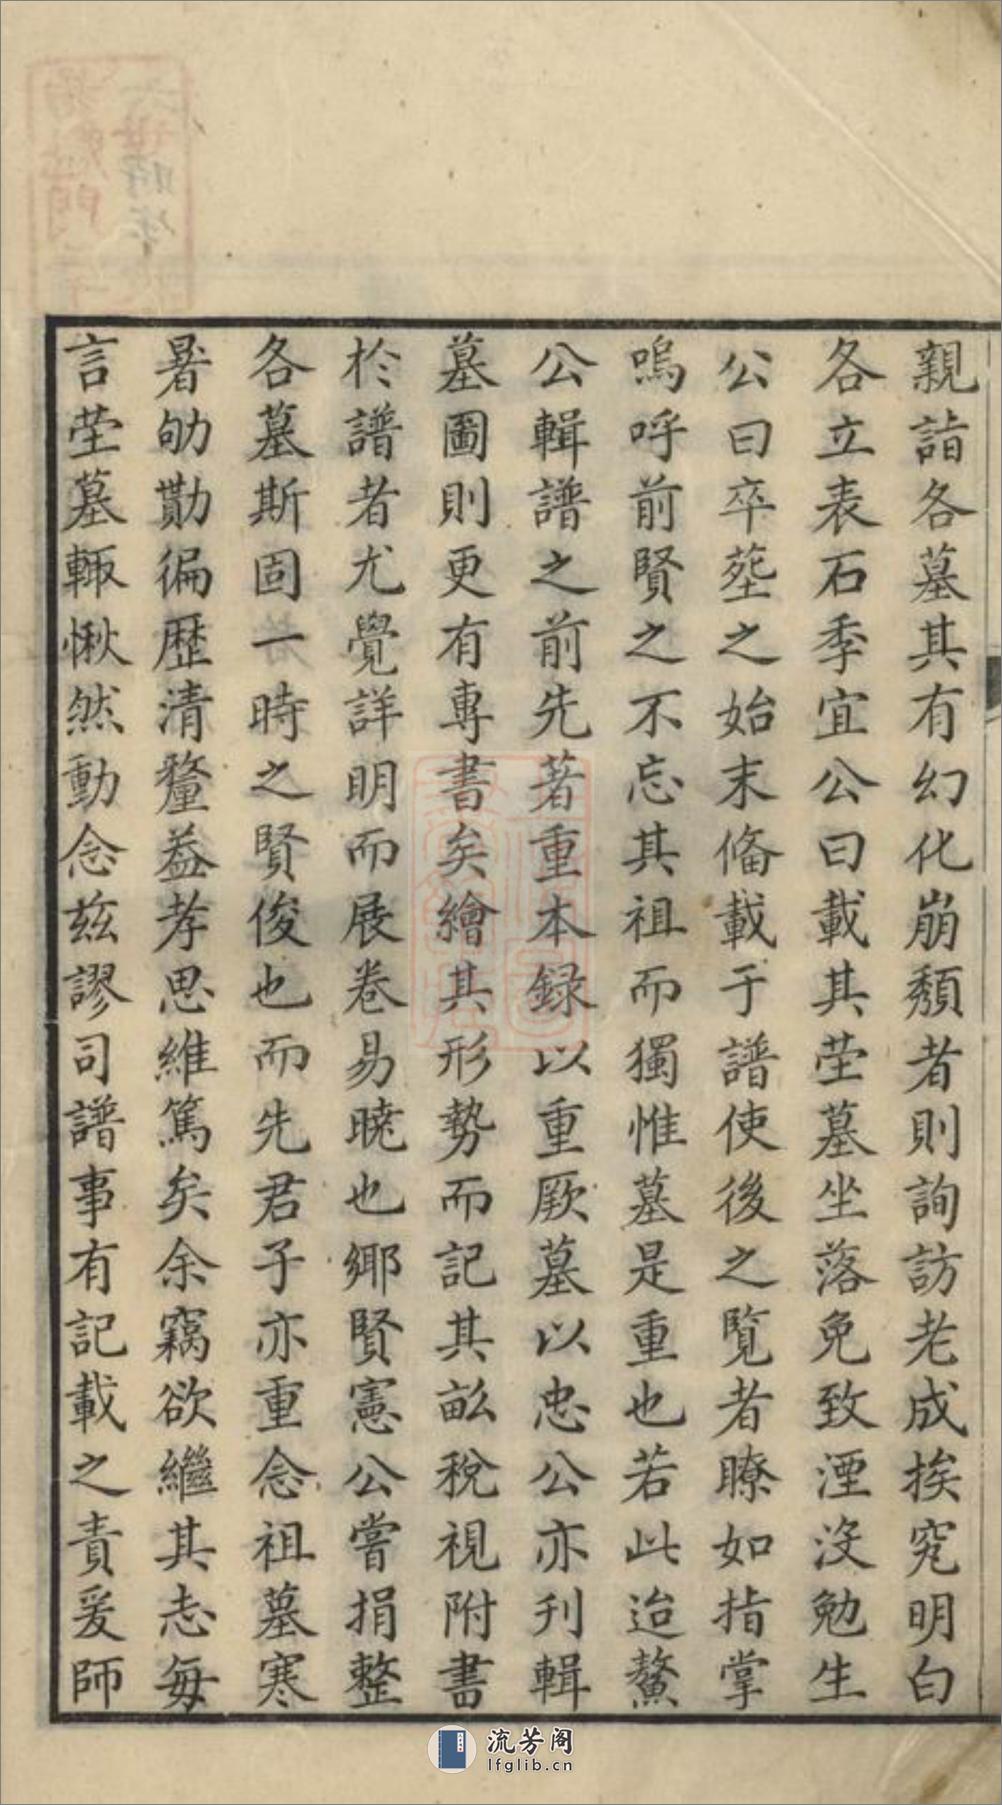 親詣各墓其有幻化崩頹者則詢訪老成挨究明白
各立表石季宜公曰載其茔墓坐落免致湮沒勉生
公曰卒塟之始末俻載于譜使後之覧者瞭如指掌
嗚呼前賢之不忘其祖而獨惟墓是重也若此迨鰲
公輯譜之前先著重本録以重厥墓以忠公亦刋輯
墓圖則更有專書矣繪其形勢而記其畝稅視附書
於譜者尤覺詳明而展卷易曉也鄉賢憲公嘗捐整
各墓斯固一時之賢俊也而先君子亦重念祖墓寒
暑劬勩徧歷清釐益孝思維篤矣余竊欲繼其志每
言茔墓輙愀然動念兹謬司譜事有記載之責爰師
流芳阁
lfglib.cn